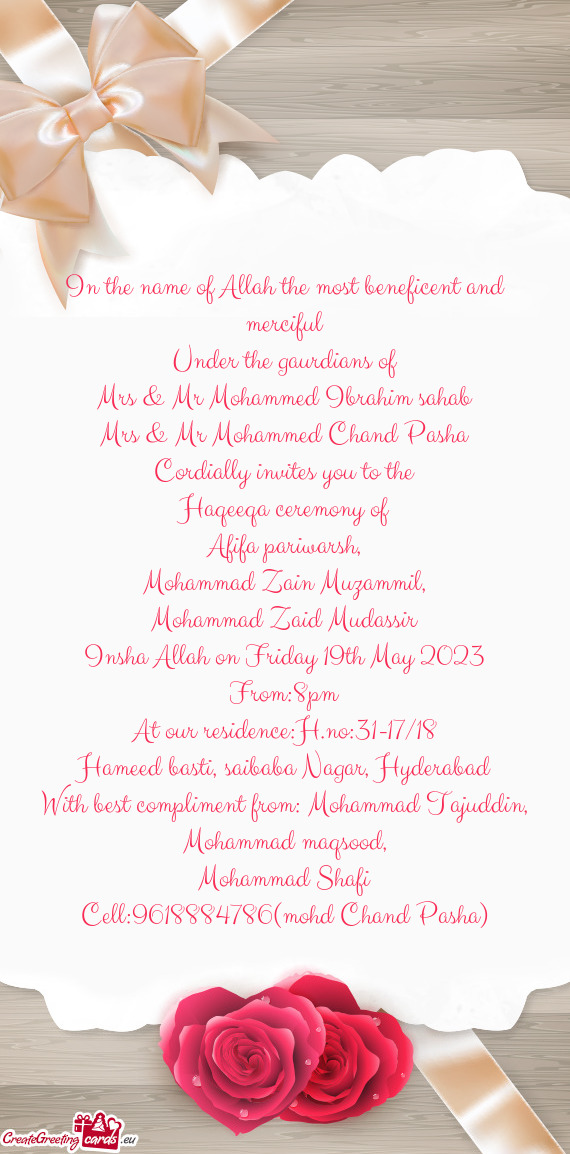 In the name of Allah the most beneficent and
merciful
Under the gaurdians of
Mrs & Mr Mohammed Ibrahim sahab
Mrs & Mr Mohammed Chand Pasha
Cordially invites you to the
Haqeeqa ceremony of
Afifa pariwarsh,
Mohammad Zain Muzammil,
Mohammad Zaid Mudassir
Insha Allah on Friday 19th May 2023
From:8pm
At our residence:H.no:31-17/18
Hameed basti, saibaba Nagar, Hyderabad
With best compliment from: Mohammad Tajuddin,
Mohammad maqsood,
Mohammad Shafi
Cell:9618884786(mohd Chand Pasha)
CreateGreeting cards .eu